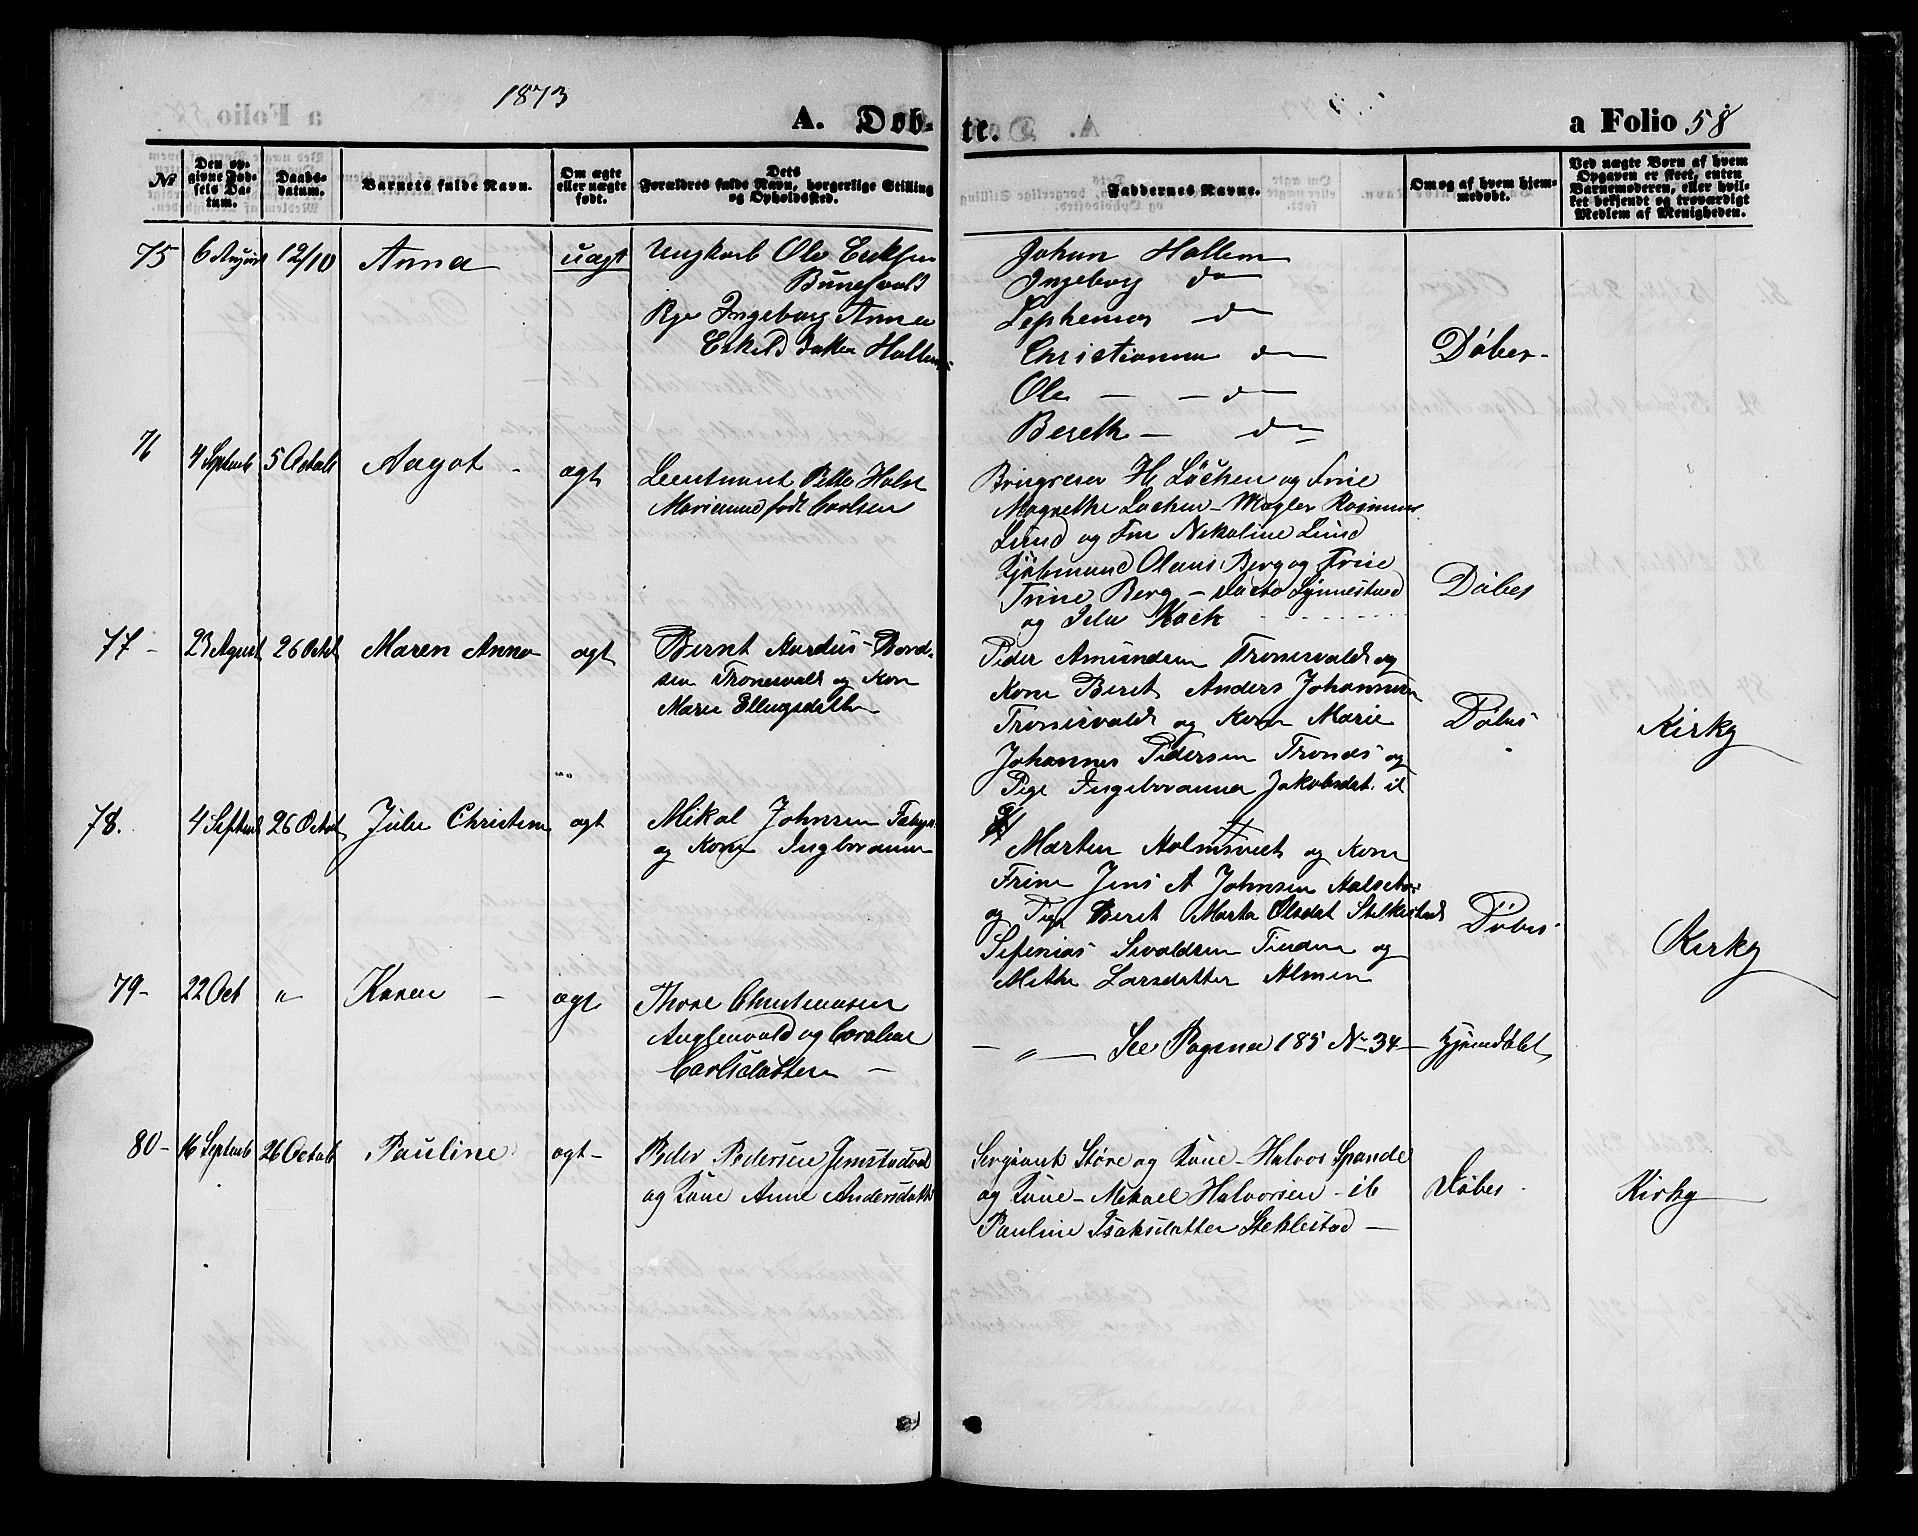 1873
A. Døb- te. a Folio 58
No
Den op-
givne Fød-
sels Da-
tum.
Daabs-
datum.
Barnets fulde Navn.
Om ægte
eller uægte
født.
Dets
Forældres fulde Navn, borgerlige Stilling
og Opholdssted.
Faddernes Navne.
Om og af hvem hjem-
medøbt.
Ved uægte Børn af hvem
Opgaven er skeet, enten
Barnemoderen, eller hvil-
ket bekjendt og troværdigt
Medlem af Menigheden.
75 6 August 12/10 Anna uægt Ungkarl Ole Eriksen
Pige Ingeborg Anna
Johan Hallem
Ingeborg do
do
Christianna do
Ole — do
Bereth — do
Døbes-
76 4 Septemb 5 Octob Aagot - ægt Lieutnant Petter Holst
født Carlsen
H. Löchen og Frue
Magrethe Lochen - Mægler Rasmus
Lund og Fru Nekoline Lund
Kjøbmand Olaus Berg og Frue
Trine Berg -
og Koch
Døbes
77 - 23 August 26 Octob Maren Anna ægt Bernt Aardus Bord-
sen Tronesvald og Kone
Marie Ellingsdatter
Peder Amundsen Tronesvald og
Kone Beret Anders Johannesen
Tronesvald og Kone Marie
Johannes Pedersen Trones og
Pige Ingeboranna Jakobsdat. il
Døbes
Kirky
78. 4 Septemb 26 Octob Julie Christine ægt Mikal Johnsen
og Kone Ingboranna
Marten Holmsveet og Kone
Trine Jens A Johnsen
og Pige Beret Marta Olsdat Stelkestad
Sefenias Sivaldsen Tinden og
Methe Larsdatter Almen
Døbes
Kirky
79- 22 Oct " Karen - ægt Thore Christiansen
og Caroline
Carlsdatter —
— " — See Pagina 185 No 34 — Hjemdøbt
80- 16 Septemb 26 Octob Pauline ægt- Peder Pedersen
og Kone Anne Andersdatter
Sergeant Støre og Kone - Halvor Spande
og Kone - Mekael Halvorsen - ib
Pauline Isaksdatter Steklestad —
Døbes
Kirky